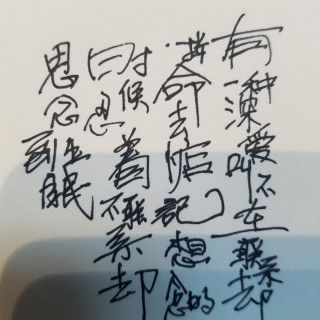 有一种深爱叫不在联系却
拼命去惦记想念的
时候忍着不联系却
思念到失眠